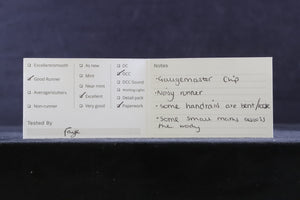 Excellent/smooth
Good Runner
Average/stutters
Non-runner
Tested By
As new
Mint
Near mint
Excellent
Very good
DC
DCC
DCC Sound
Working Lights
Detail pack
Paperwork
Notes
• Gaugemaster Chip
• Noisy runner
• some handrails are bent/
• Some small marks across
the body